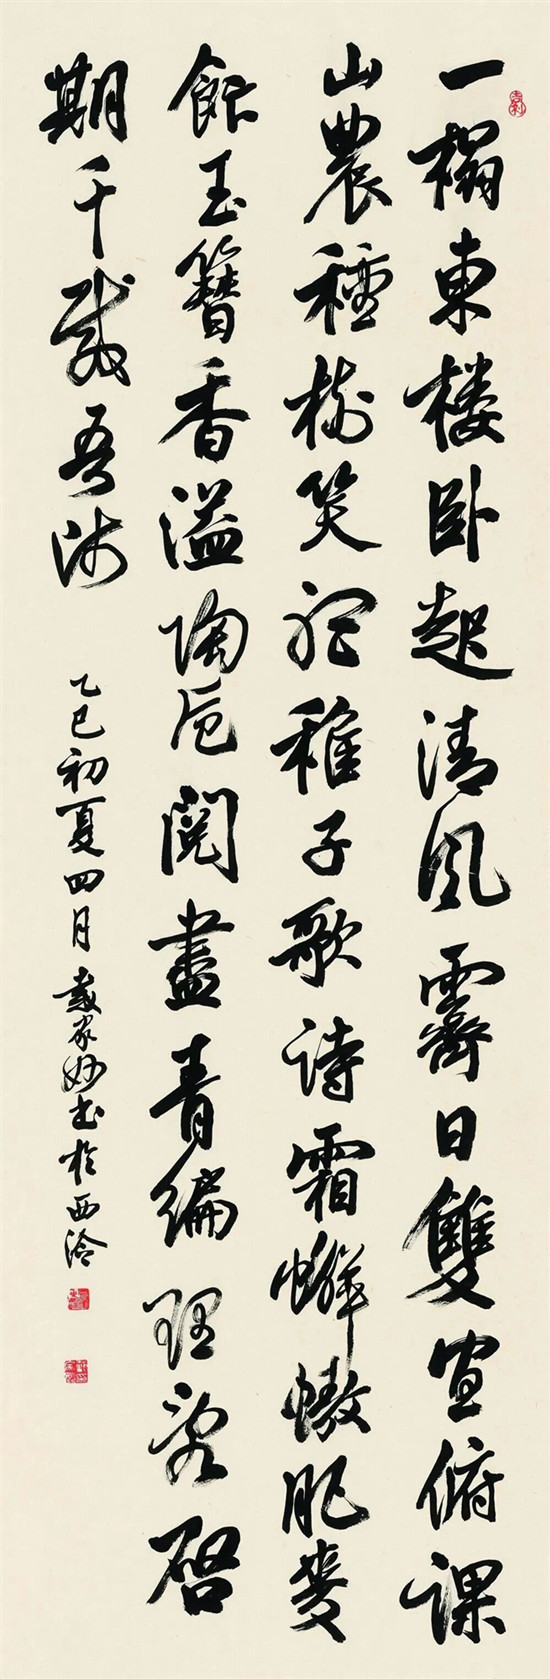 一榻東楼卧起清風霽日雙宜俯課
山農種樹笑聽稚子歌詩霜蠏螯肥麥
飯玉簪香溢陶卮閱盡青編理亂啓
期千載吾師
乙巳初夏四月戴家妙书於西泠